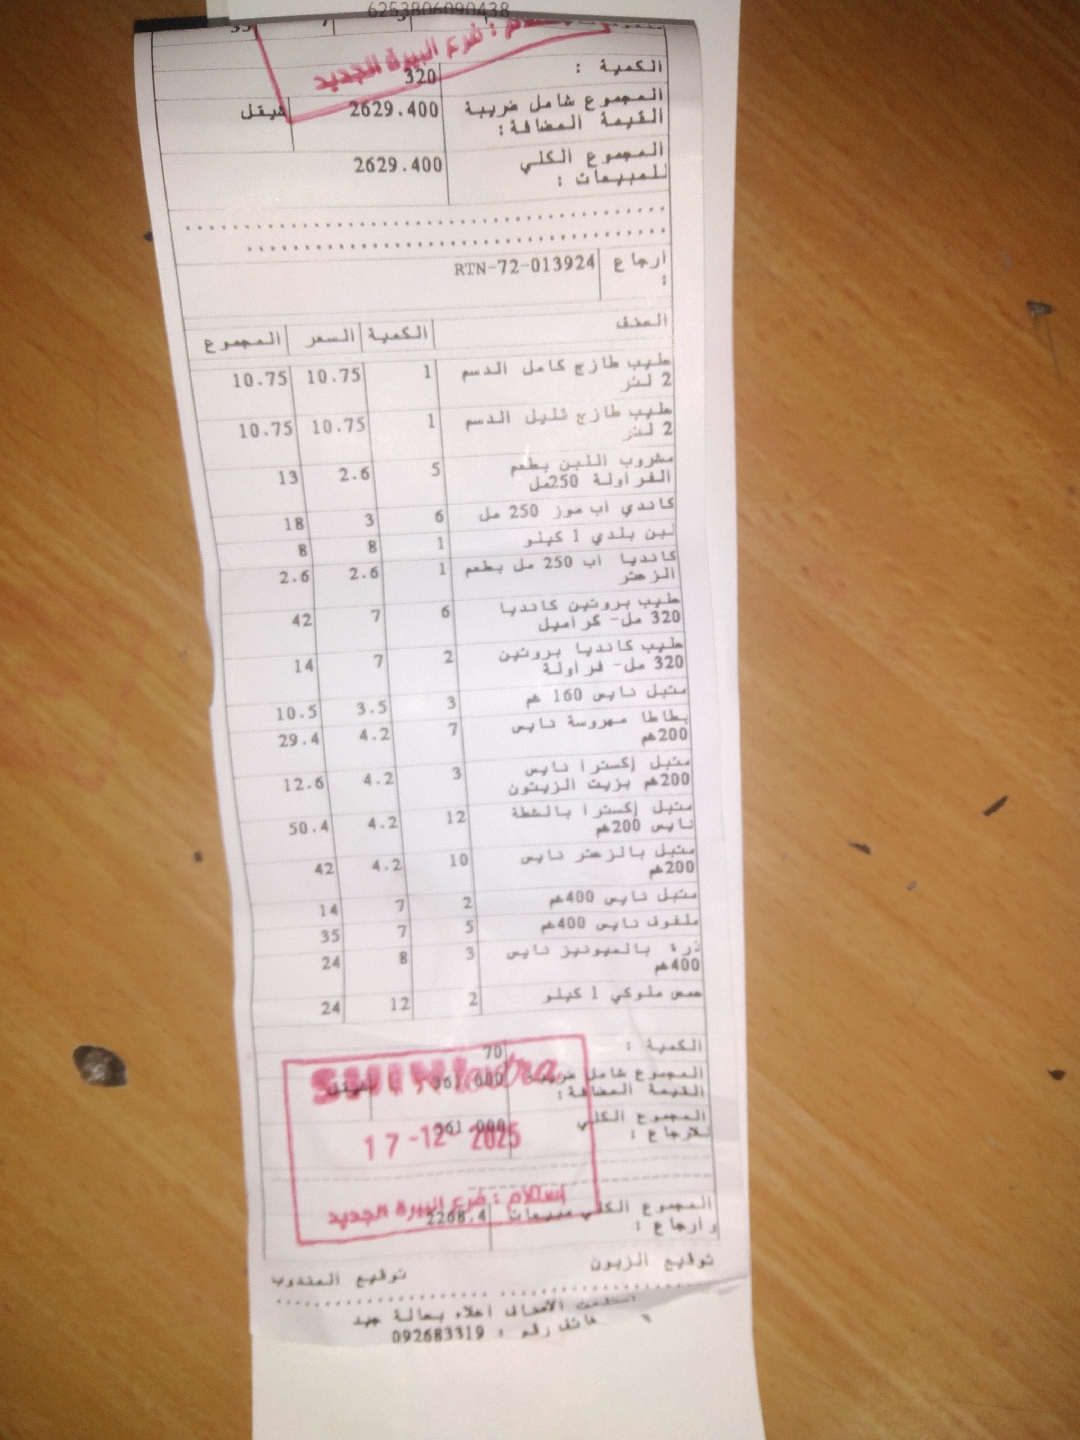 6253806090438
35
استلام : فرع البيرة الجديد
الكمية : 320
المجموع شامل ضريبة 2629.400 شيقل
القيمة المضافة:
المجموع الكلي 2629.400
للمبيعات :
ارجاع RTN-72-013924
:
الصنف الكمية السعر المجموع
حليب طازج كامل الدسم 1 10.75 10.75
2 لتر
حليب طازج قليل الدسم 1 10.75 10.75
2 لتر
مشروب اللبن بطعم 5 2.6 13
الفراولة 250مل
كاندي اب موز 250 مل 6 3 18
لبن بلدي 1 كيلو 1 8 8
كانديا اب 250 مل بطعم 1 2.6 2.6
الزعتر
حليب بروتين كانديا 6 7 42
320 مل- كراميل
حليب كانديا بروتين 2 7 14
320 مل- فراولة
متبل نايس 160 غم 3 3.5 10.5
بطاطا مهروسة نايس 7 4.2 29.4
200غم
متبل إكسترا نايس 3 4.2 12.6
200غم بزيت الزيتون
متبل إكسترا بالشطة 12 4.2 50.4
نايس 200غم
متبل بالزعتر نايس 10 4.2 42
200غم
متبل نايس 400غم 2 7 14
ملفوف نايس 400غم 5 7 35
ذرة بالميونيز نايس 3 8 24
400غم
حمص ملوكي 1 كيلو 2 12 24
الكمية : 70
المجموع شامل ضريبة 361.000 شيقل
القيمة المضافة:
المجموع الكلي 361.000
للارجاع :
17-12-2025
استلام : فرع البيرة الجديد
المجموع الكلي مبيعات 2268.4
وارجاع :
توقيع الزبون توقيع المندوب
استلمت الأصناف اعلاه بحالة جيد
هاتف رقم : 092683319